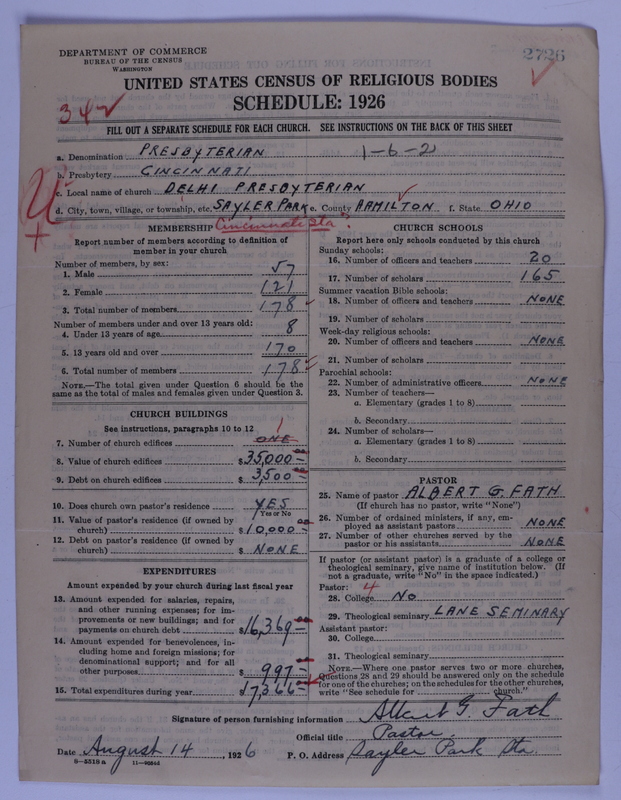 DEPARTMENT OF COMMERCE
BUREAU OF THE CENSUS
WASHINGTON
2726
UNITED STATES CENSUS OF RELIGIOUS BODIES
SCHEDULE: 1926
FILL OUT A SEPARATE SCHEDULE FOR EACH CHURCH. SEE INSTRUCTIONS ON THE BACK OF THIS SHEET
a. Denomination PRESBYTERIAN 1-6-2
b. Presbytery CINCINNATI
c. Local name of church DELHI PRESBYTERIAN
d. City, town, village, or township, etc. SAYLER PARK e. County HAMILTON f. State OHIO
Cincinnati Sta.
MEMBERSHIP
Report number of members according to definition of
member in your church
Number of members, by sex:
1. Male 57
2. Female 121
3. Total number of members 178
Number of members under and over 13 years old:
4. Under 13 years of age 8
5. 13 years old and over 170
6. Total number of members 178
NOTE.—The total given under Question 6 should be the
same as the total of males and females given under Question 3.
CHURCH BUILDINGS
See instructions, paragraphs 10 to 12
7. Number of church edifices ONE 1
8. Value of church edifices $35,000 —
9. Debt on church edifices $3,500 —
10. Does church own pastor's residence YES
Yes or No
11. Value of pastor's residence (if owned by
church) $10,000 —
12. Debt on pastor's residence (if owned by
church) $ NONE
EXPENDITURES
Amount expended by your church during last fiscal year
13. Amount expended for salaries, repairs,
and other running expenses; for im-
provements or new buildings; and for
payments on church debt $16,369 —
14. Amount expended for benevolences, in-
cluding home and foreign missions; for
denominational support; and for all
other purposes $ 997 —
15. Total expenditures during year $17,366 —
CHURCH SCHOOLS
Report here only schools conducted by this church
Sunday schools:
16. Number of officers and teachers 20
17. Number of scholars 165
Summer vacation Bible schools:
18. Number of officers and teachers NONE
19. Number of scholars
Week-day religious schools:
20. Number of officers and teachers NONE
21. Number of scholars
Parochial schools:
22. Number of administrative officers NONE
23. Number of teachers—
a. Elementary (grades 1 to 8)
b. Secondary
24. Number of scholars—
a. Elementary (grades 1 to 8)
b. Secondary
PASTOR
25. Name of pastor ALBERT G. FATH
(If church has no pastor, write "None")
26. Number of ordained ministers, if any, em-
ployed as assistant pastors NONE
27. Number of other churches served by the
pastor or his assistants NONE
If pastor (or assistant pastor) is a graduate of a college or
theological seminary, give name of institution below. (If
not a graduate, write "No" in the space indicated.)
Pastor: 4
28. College No
29. Theological seminary LANE SEMINARY
Assistant pastor:
30. College
31. Theological seminary
NOTE.—Where one pastor serves two or more churches,
Questions 28 and 29 should be answered only on the schedule
for one of the churches; on the schedules for the other churches,
write "See schedule for church."
Signature of person furnishing information Albert G. Fath
Official title Pastor.
Date August 14, 1926 P. O. Address Sayler Park Sta.
8-5518a